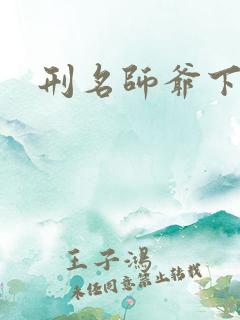 刑名師爺下
王子鴻
未经同意禁止转载